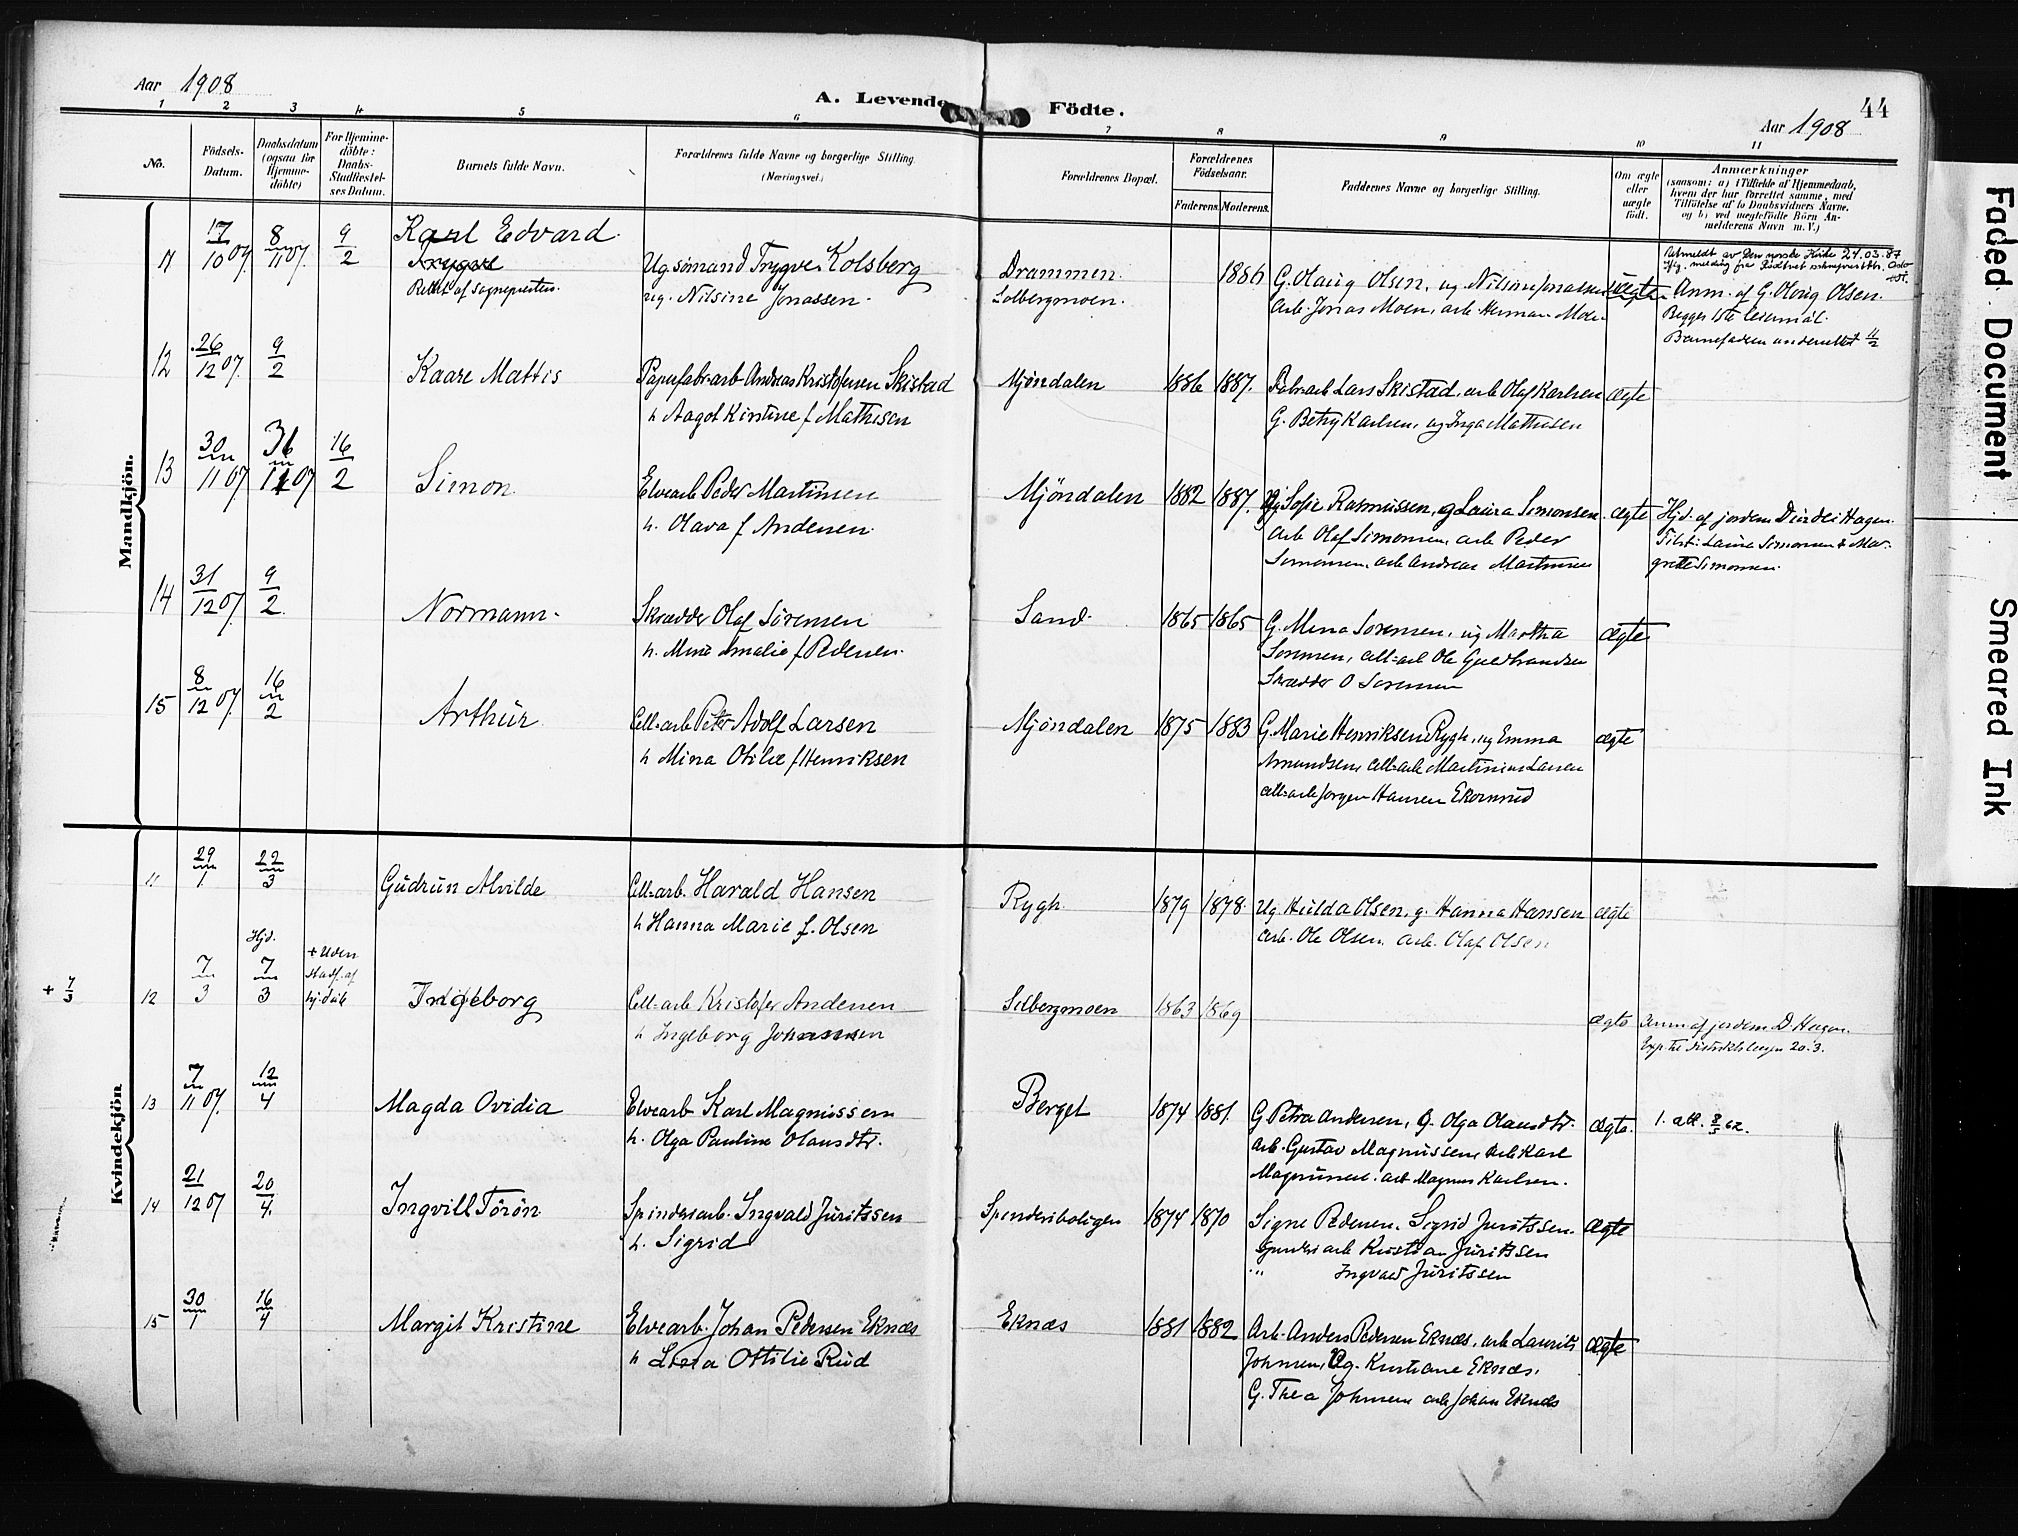 Aar 1908
A. Levende Födte.
44
Aar 1908
1 2 3 4 5 6 7 8 9 10 11
No.
Födsels-
Datum.
Daabsdatum
(ogsaa for
Hjemme-
döbte)
For Hjemme-
döbte:
Daabs-
Stadfæstel-
ses Datum.
Barnets fulde Navn.
Forældrenes fulde Navne og borgerlige Stilling
(Næringsvei.)
Forældrenes Bopæl.
Forældrenes
Födselsaar.
Faderens. Moderens.
Faddernes Navne og borgerlige Stilling.
Om ægte
eller
uægte
födt.
Anmærkninger
(saasom: a) i Tilfælde af Hjemmedaab,
hvem der har forrettet samme, med
Tilföielse af to Daabsvidners Navne.
og b) ved uægtefödte Börn An-
melderens Navn m. V.)
Mandkjön.
11 17/10 07. 8/11 07. 9/2 Karl Edvard
Trygve
Rettet af sognepresten.
Ug sömand Trygve Kolsberg
ug. Nilsine Jonassen.
Drammen.
Solbergmoen.
1886
G. Olaug Olsen, ug Nilsine Jonassen
Arb. Jonas Moen, arb Herman Moen
uægte
Utmeldt av Den norske Kirke 24.03.87
Anm. af G. Olaug Olsen.
Begges 1ste leiermål.
Barnefaderen underrettet 11/2
12 26/12 07. 9/2 Kaare Mattis
Papirfabr.arb Andreas Kristofersen Skistad
h Aagot Kirstine f Mathisen
Mjöndalen 1886 1887.
Fabr.arb Lars Skistad, arb Olaf Karlsen
G. Betsy Karlsen, ug Inga Mathisen
ægte
13 30/11 07 31/12 07 16/2 Simon
Elvearb Peder Martinsen
h. Olava f Andersen.
Mjöndalen 1882 1887.
Ug Sofie Rasmussen, g Laura Simonsen
Arb Olaf Simonsen, arb Peder
Simonsen, arb Andreas Martinsen
ægte
Hjd. af jordem Hagen
Tilst: Laura Simonsen & Mar-
grette Simonsen.
14 31/12 07. 9/2. Normann.
Skrædder Olaf Sörensen
h. Mina Amalie f Pedersen.
Sand. 1865 1865
G. Mina Sorensen, ug Martha
Sorensen, cell=arb Ole Guldbrandsen
Skrædder O Sorensen
ægte
15 8/12 07. 16/2 Arthur
Cell=arb Peter Adolf Larsen
h Mina Otilie f Henriksen
Mjöndalen 1875 1883
G. Marie Henriksen Rygh, ug Emma
Amundsen, cell=arb Martinius Larsen
cell=arb Jorgen Hansen Ekornrud
ægte
Kvindekjön
11 29/1 22/3 Gudrun Alvilde
Cell=arb. Harald Hansen
h Hanna Marie f. Olsen
Rygh. 1879 1878.
Ug Hulda Olsen, g. Hanna Hansen
Arb. Ole Olsen, arb. Olaf Olsen
ægte
+ 7/3 12 7/3 Hjd. 7/3 + Uden
stadf. af
hj.daab
Ingeborg
Cell=arb Kristofer Andersen
h Ingeborg Johannsen
Solbergmoen 1863 1869
ægte
Anm af jordem D. Hagen.
Exp. til distriktslægen 20.3.
13 7/11 07. 12/4 Magda Ovidia
Elvearb Karl Magnussen
h. Olga Pauline Olausdtr.
Berget 1874 1881.
G Petra Andersen, G. Olga Olausdtr.
Arb. Gustav Magnussen, arb Karl
Magnussen, arb Magnus Karlsen.
ægte.
1. att. 8/5 62.
14 21/12 07 20/4. Ingvill Törön
Spinderiarb. Ingvald Juritssen
h. Sigrid
Spinderiboligen 1874 1870
Signe Pedersen, Sigrid Juritssen.
Spinderiarb Kristian Juritssen
" Ingvald Juritssen
ægte
15 30/1 16/4 Margit Kristine
Elvearb. Johan Pedersen Eknæs
h Lina Ottilie Ruud
Eknæs 1881 1882
Arb. Anders Pedersen Eknæs, arb Laurits
Johnsen, Ug. Kristiane Eknæs.
G. Thea Johnsen arb Johan Eknæs
ægte
Faded Document
Smeared Ink